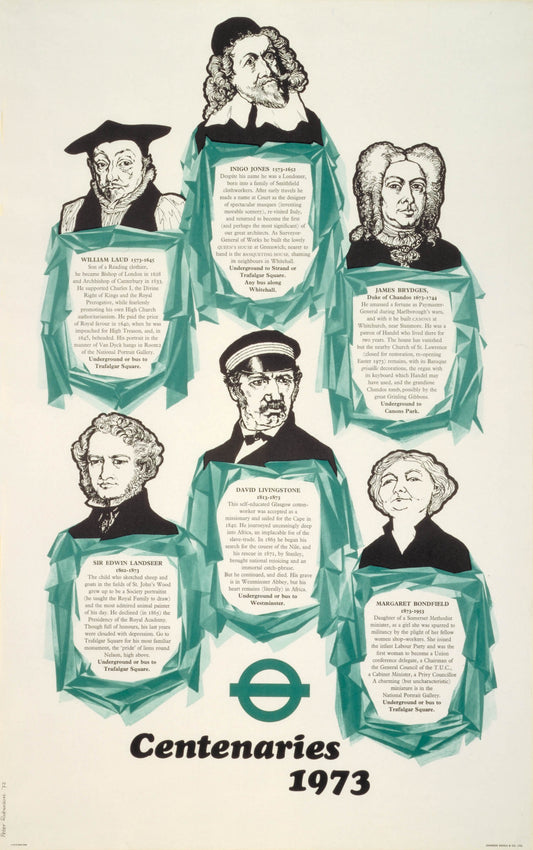 INIGO JONES 1573-1652
Despite his name he was a Londoner,
born into a family of Smithfield
clothworkers. After early travels he
made a name at Court as the designer
of spectacular masques (inventing
movable scenery), re-visited Italy,
and returned to become the first
(and perhaps the most significant) of
our great architects. As Surveyor-
General of Works he built the lovely
QUEEN'S HOUSE at Greenwich; nearer to
hand is the BANQUETING HOUSE, shaming
its neighbours in Whitehall.
Underground to Strand or
Trafalgar Square.
Any bus along
Whitehall.
WILLIAM LAUD 1573-1645
Son of a Reading clothier,
he became Bishop of London in 1628
and Archbishop of Canterbury in 1633.
He supported Charles I, the Divine
Right of Kings and the Royal
Prerogative, while fearlessly
promoting his own High Church
authoritarianism. He paid the price
of Royal favour in 1640, when he was
impeached for High Treason, and, in
1645, beheaded. His portrait in the
manner of Van Dyck hangs in Room 2
of the National Portrait Gallery.
Underground or bus to
Trafalgar Square.
JAMES BRYDGES,
Duke of Chandos 1673-1744
He amassed a fortune as Paymaster-
General during Marlborough's wars,
and with it he built CANONS at
Whitchurch, near Stanmore. He was a
patron of Handel who lived there for
two years. The house has vanished
but the nearby Church of St. Lawrence
(closed for restoration, re-opening
Easter 1973) remains, with its Baroque
grisaille decorations, the organ with
its keyboard which Handel may
have used, and the grandiose
Chandos tomb, possibly by the
great Grinling Gibbons.
Underground to
Canons Park.
DAVID LIVINGSTONE
1813-1873
This self-educated Glasgow cotton-
worker was accepted as a
missionary and sailed for the Cape in
1840. He journeyed unceasingly deep
into Africa, an implacable foe of the
slave-trade. In 1865 he began his
search for the source of the Nile, and
his rescue in 1871, by Stanley,
brought national rejoicing and an
immortal catch-phrase.
But he continued, and died. His grave
is in Westminster Abbey, but his
heart remains (literally) in Africa.
Underground or bus to
Westminster.
SIR EDWIN LANDSEER
1802-1873
The child who sketched sheep and
goats in the fields of St. John's Wood
grew up to be a Society portraitist
(he taught the Royal Family to draw)
and the most admired animal painter
of his day. He declined (in 1865) the
Presidency of the Royal Academy.
Though full of honours, his last years
were clouded with depression. Go to
Trafalgar Square for his most familiar
monument, the 'pride' of lions round
Nelson, high above.
Underground or bus to
Trafalgar Square.
MARGARET BONDFIELD
1873-1953
Daughter of a Somerset Methodist
minister, as a girl she was spurred to
militancy by the plight of her fellow
women shop-workers. She joined
the infant Labour Party and was the
first woman to become a Union
conference delegate, a Chairman of
the General Council of the T.U.C.,
a Cabinet Minister, a Privy Councillor.
A charming (but uncharacteristic)
miniature is in the
National Portrait Gallery.
Underground or bus to
Trafalgar Square.
Centenaries
1973
Peter Robinson '72